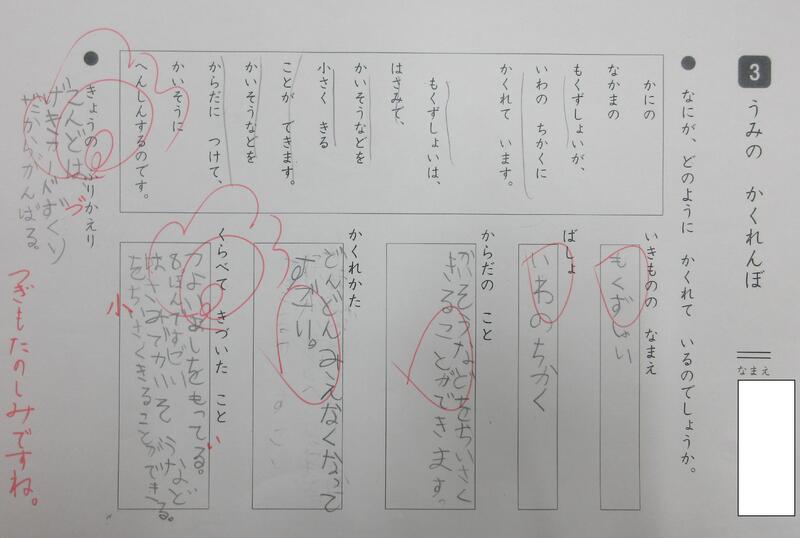 3 うみの かくれんぼ
なまえ
● なにが、どのように かくれて いるのでしょうか。
かにの
なかまの
もくずしょいが、
いわの ちかくに
かくれて います。
もくずしょいは、
はさみで、
かいそうなどを
小さく きる
ことが できます。
かいそうなどを
からだに つけて、
かいそうに
へんしんするのです。
いきものの なまえ
もくずしょい
ばしょ
いわのちかく
からだの こと
かいそうなどをちいさく
きることができます。
かくれかた
どんどんみえなくなって
すごい。
くらべて きづいた こと
つよいあしをもってる。
い
はさみでかいそうなど
をちいさくきることができる。
小
● きょうの ふりかえり
こんどは、
げきカードずくり
づ
だからがんばる。
つぎもたのしみですね。